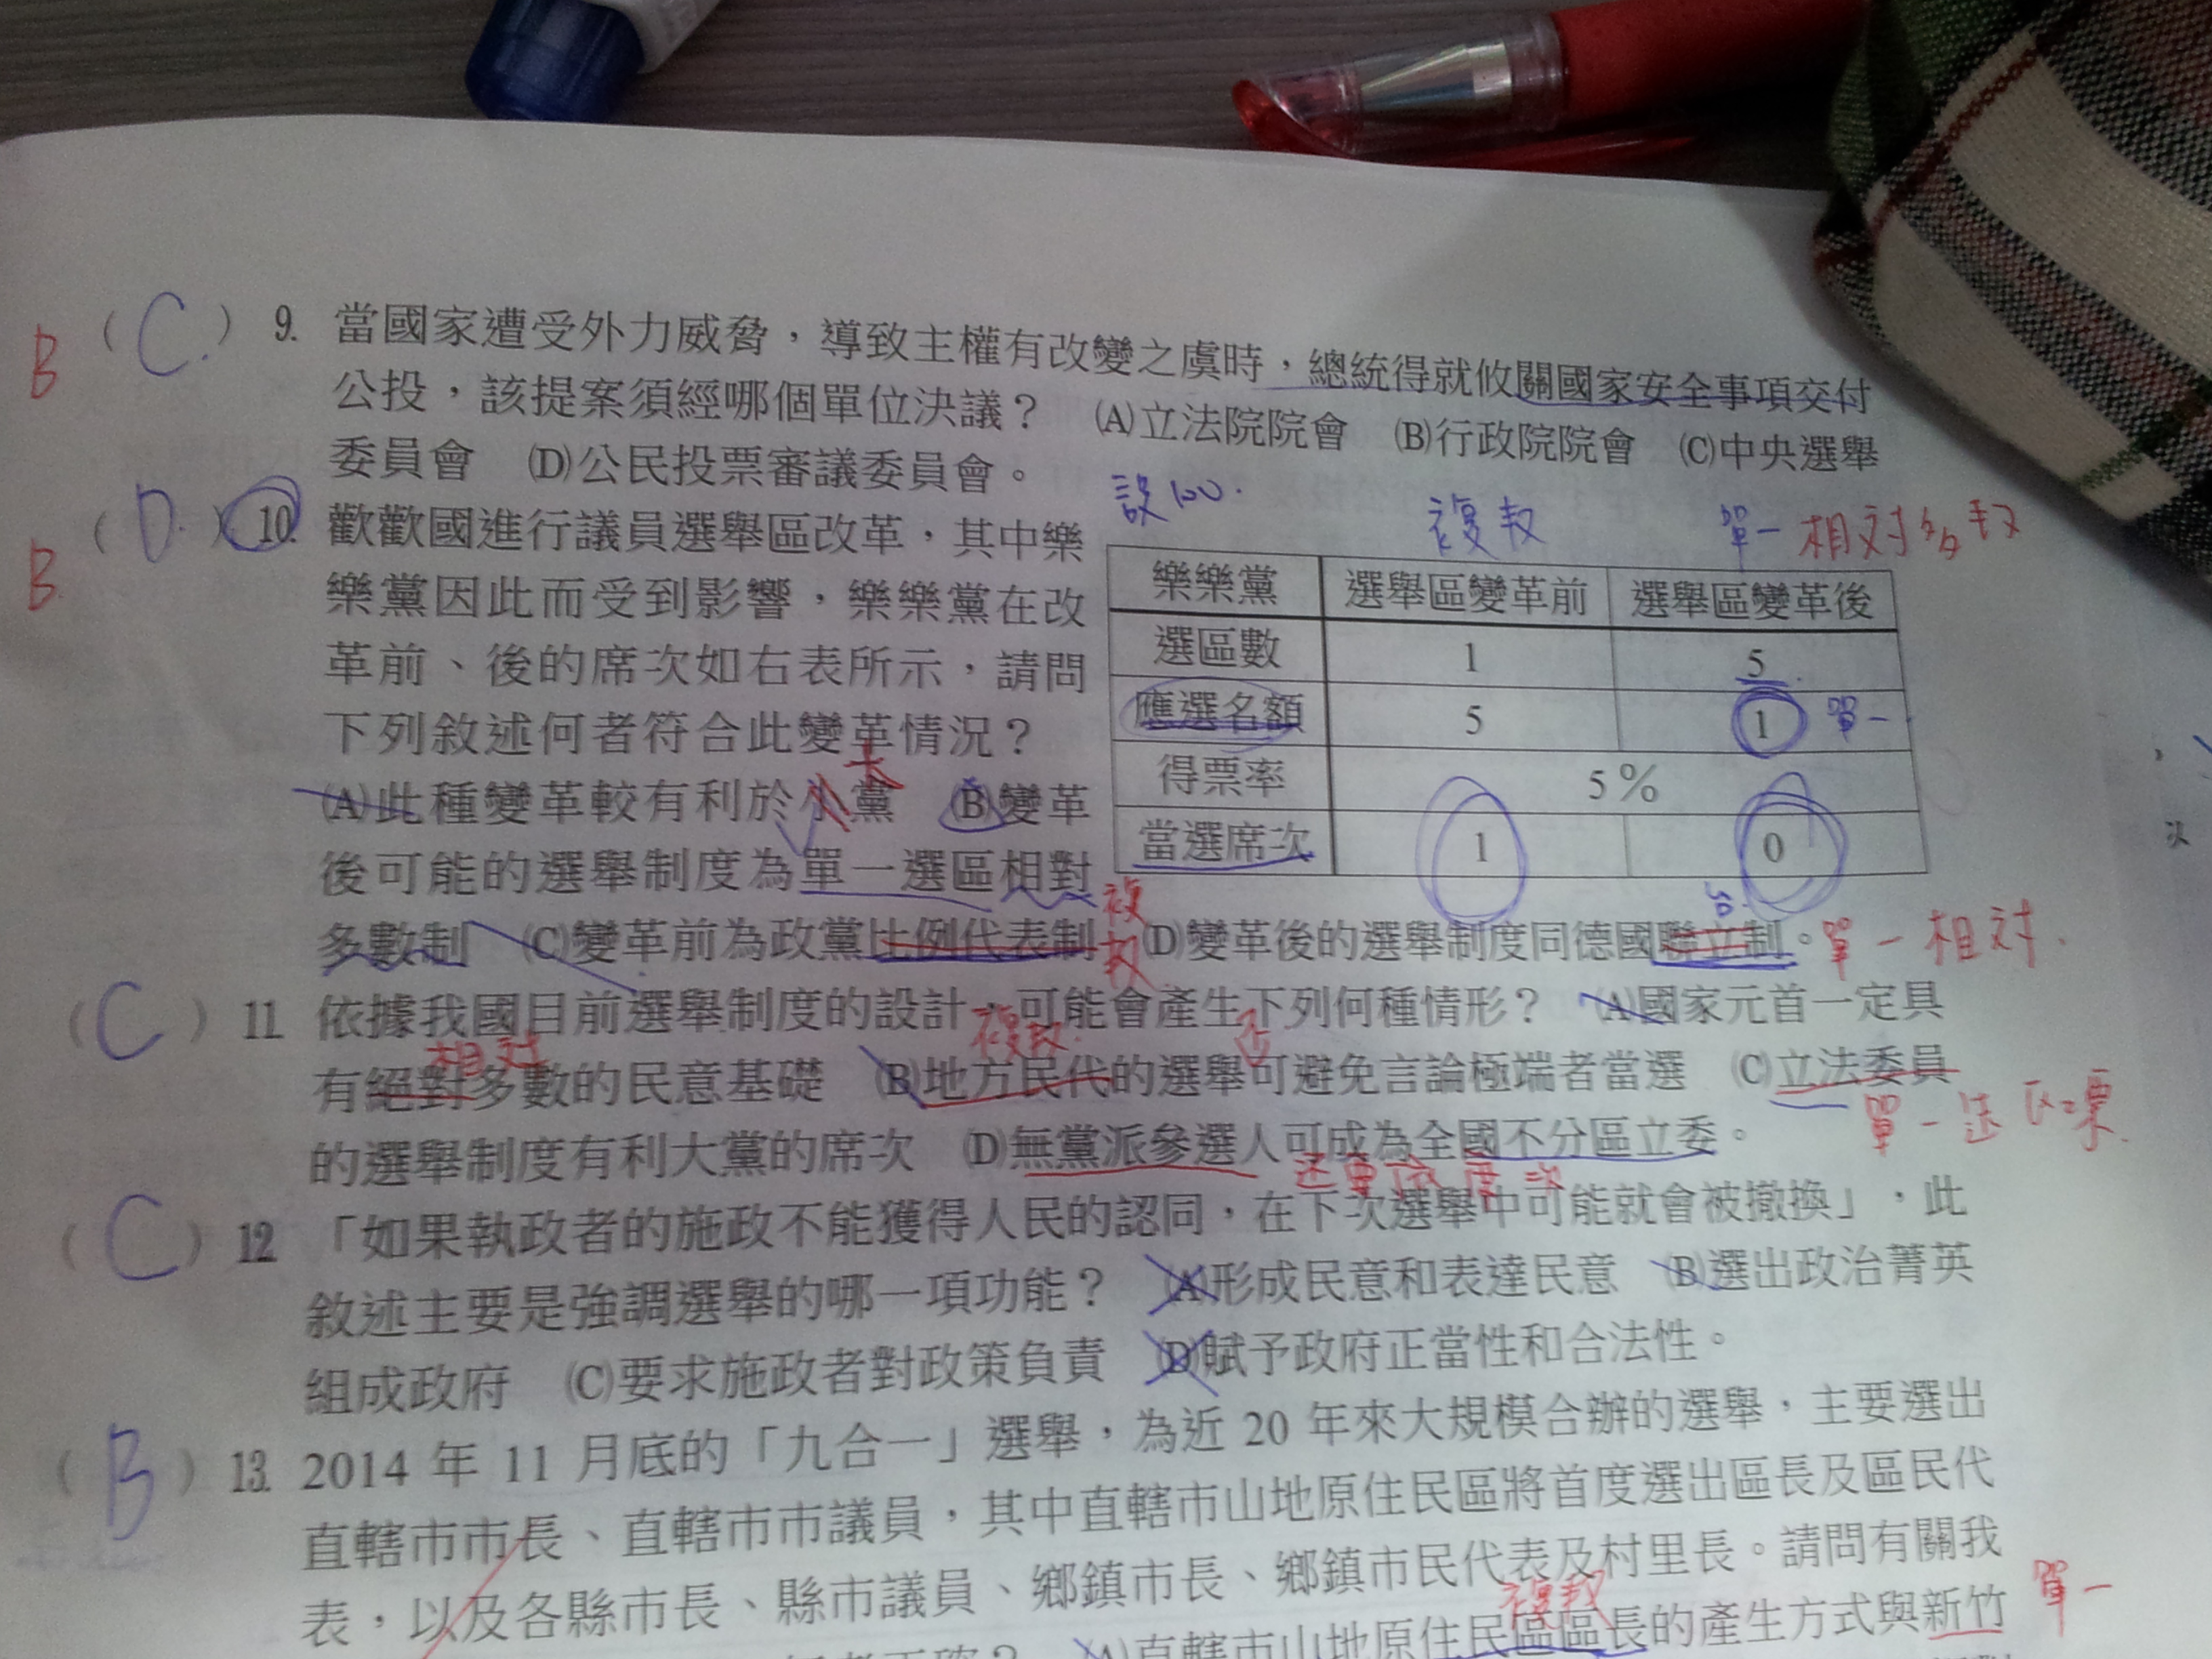 B (C.) 9. 當國家遭受外力威脅，導致主權有改變之虞時，總統得就攸關國家安全事項交付
公投，該提案須經哪個單位決議？ (A)立法院院會 (B)行政院院會 (C)中央選舉
委員會 (D)公民投票審議委員會。
設100.
複數
單一相対多数
B (D.) 10. 歡歡國進行議員選舉區改革，其中樂
樂黨因此而受到影響，樂樂黨在改
革前、後的席次如右表所示，請問
下列敘述何者符合此變革情況？
大
(A)此種變革較有利於小黨 (B)變革
後可能的選舉制度為單一選區相對
多數制 (C)變革前為政黨比例代表制 (D)變革後的選舉制度同德國聯立制。
複数
單一相対.
樂樂黨 選舉區變革前 選舉區變革後
選區數 1 5
應選名額 5 1 單一
得票率 5％
當選席次 1 0
(C) 11. 依據我國目前選舉制度的設計，可能會產生下列何種情形？ (A)國家元首一定具
相対 複数. 否
有絕對多數的民意基礎 (B)地方民代的選舉可避免言論極端者當選 (C)立法委員
單一選区
的選舉制度有利大黨的席次 (D)無黨派參選人可成為全國不分區立委。
(C) 12. 「如果執政者的施政不能獲得人民的認同，在下次選舉中可能就會被撤換」，此
敘述主要是強調選舉的哪一項功能？ (A)形成民意和表達民意 (B)選出政治菁英
組成政府 (C)要求施政者對政策負責 (D)賦予政府正當性和合法性。
(B) 13. 2014 年 11 月底的「九合一」選舉，為近 20 年來大規模合辦的選舉，主要選出
直轄市市長、直轄市市議員，其中直轄市山地原住民區將首度選出區長及區民代
表，以及各縣市長、縣市議員、鄉鎮市長、鄉鎮市民代表及村里長。請問有關我
複数
單一
(A)直轄市山地原住民區區長的產生方式與新竹